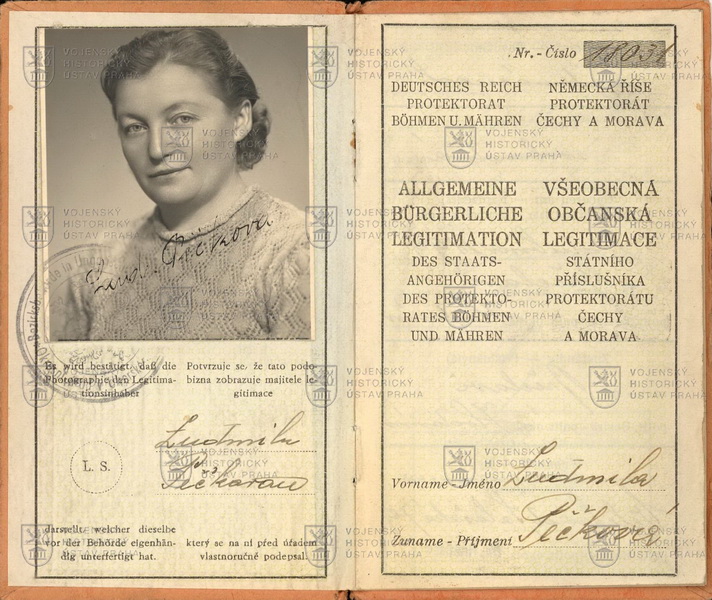 Ludmila
Pěčková
Es wird bestätigt, daß die
Photographie den Legitima-
tionsinhaber
Potvrzuje se, že tato podo-
bizna zobrazuje majitele le-
gitimace
L. S.
Ludmila
darstellt, welcher dieselbe
vor der Behörde eigenhän-
dig unterfertigt hat.
který se na ní před úřadem
vlastnoručně podepsal.
Nr. - Číslo 18031
DEUTSCHES REICH
PROTEKTORAT
BÖHMEN U. MÄHREN
NĚMECKÁ ŘÍŠE
PROTEKTORÁT
ČECHY A MORAVA
ALLGEMEINE
BÜRGERLICHE
LEGITIMATION
DES STAATS-
ANGEHÖRIGEN
DES PROTEKTO-
RATES BÖHMEN
UND MÄHREN
VŠEOBECNÁ
OBČANSKÁ
LEGITIMACE
STÁTNÍHO
PŘÍSLUŠNÍKA
PROTEKTORÁTU
ČECHY
A MORAVA
Vorname - Jméno Ludmila
Zuname - Příjmení Pěčková
VOJENSKÝ
HISTORICKÝ
ÚSTAV PRAHA